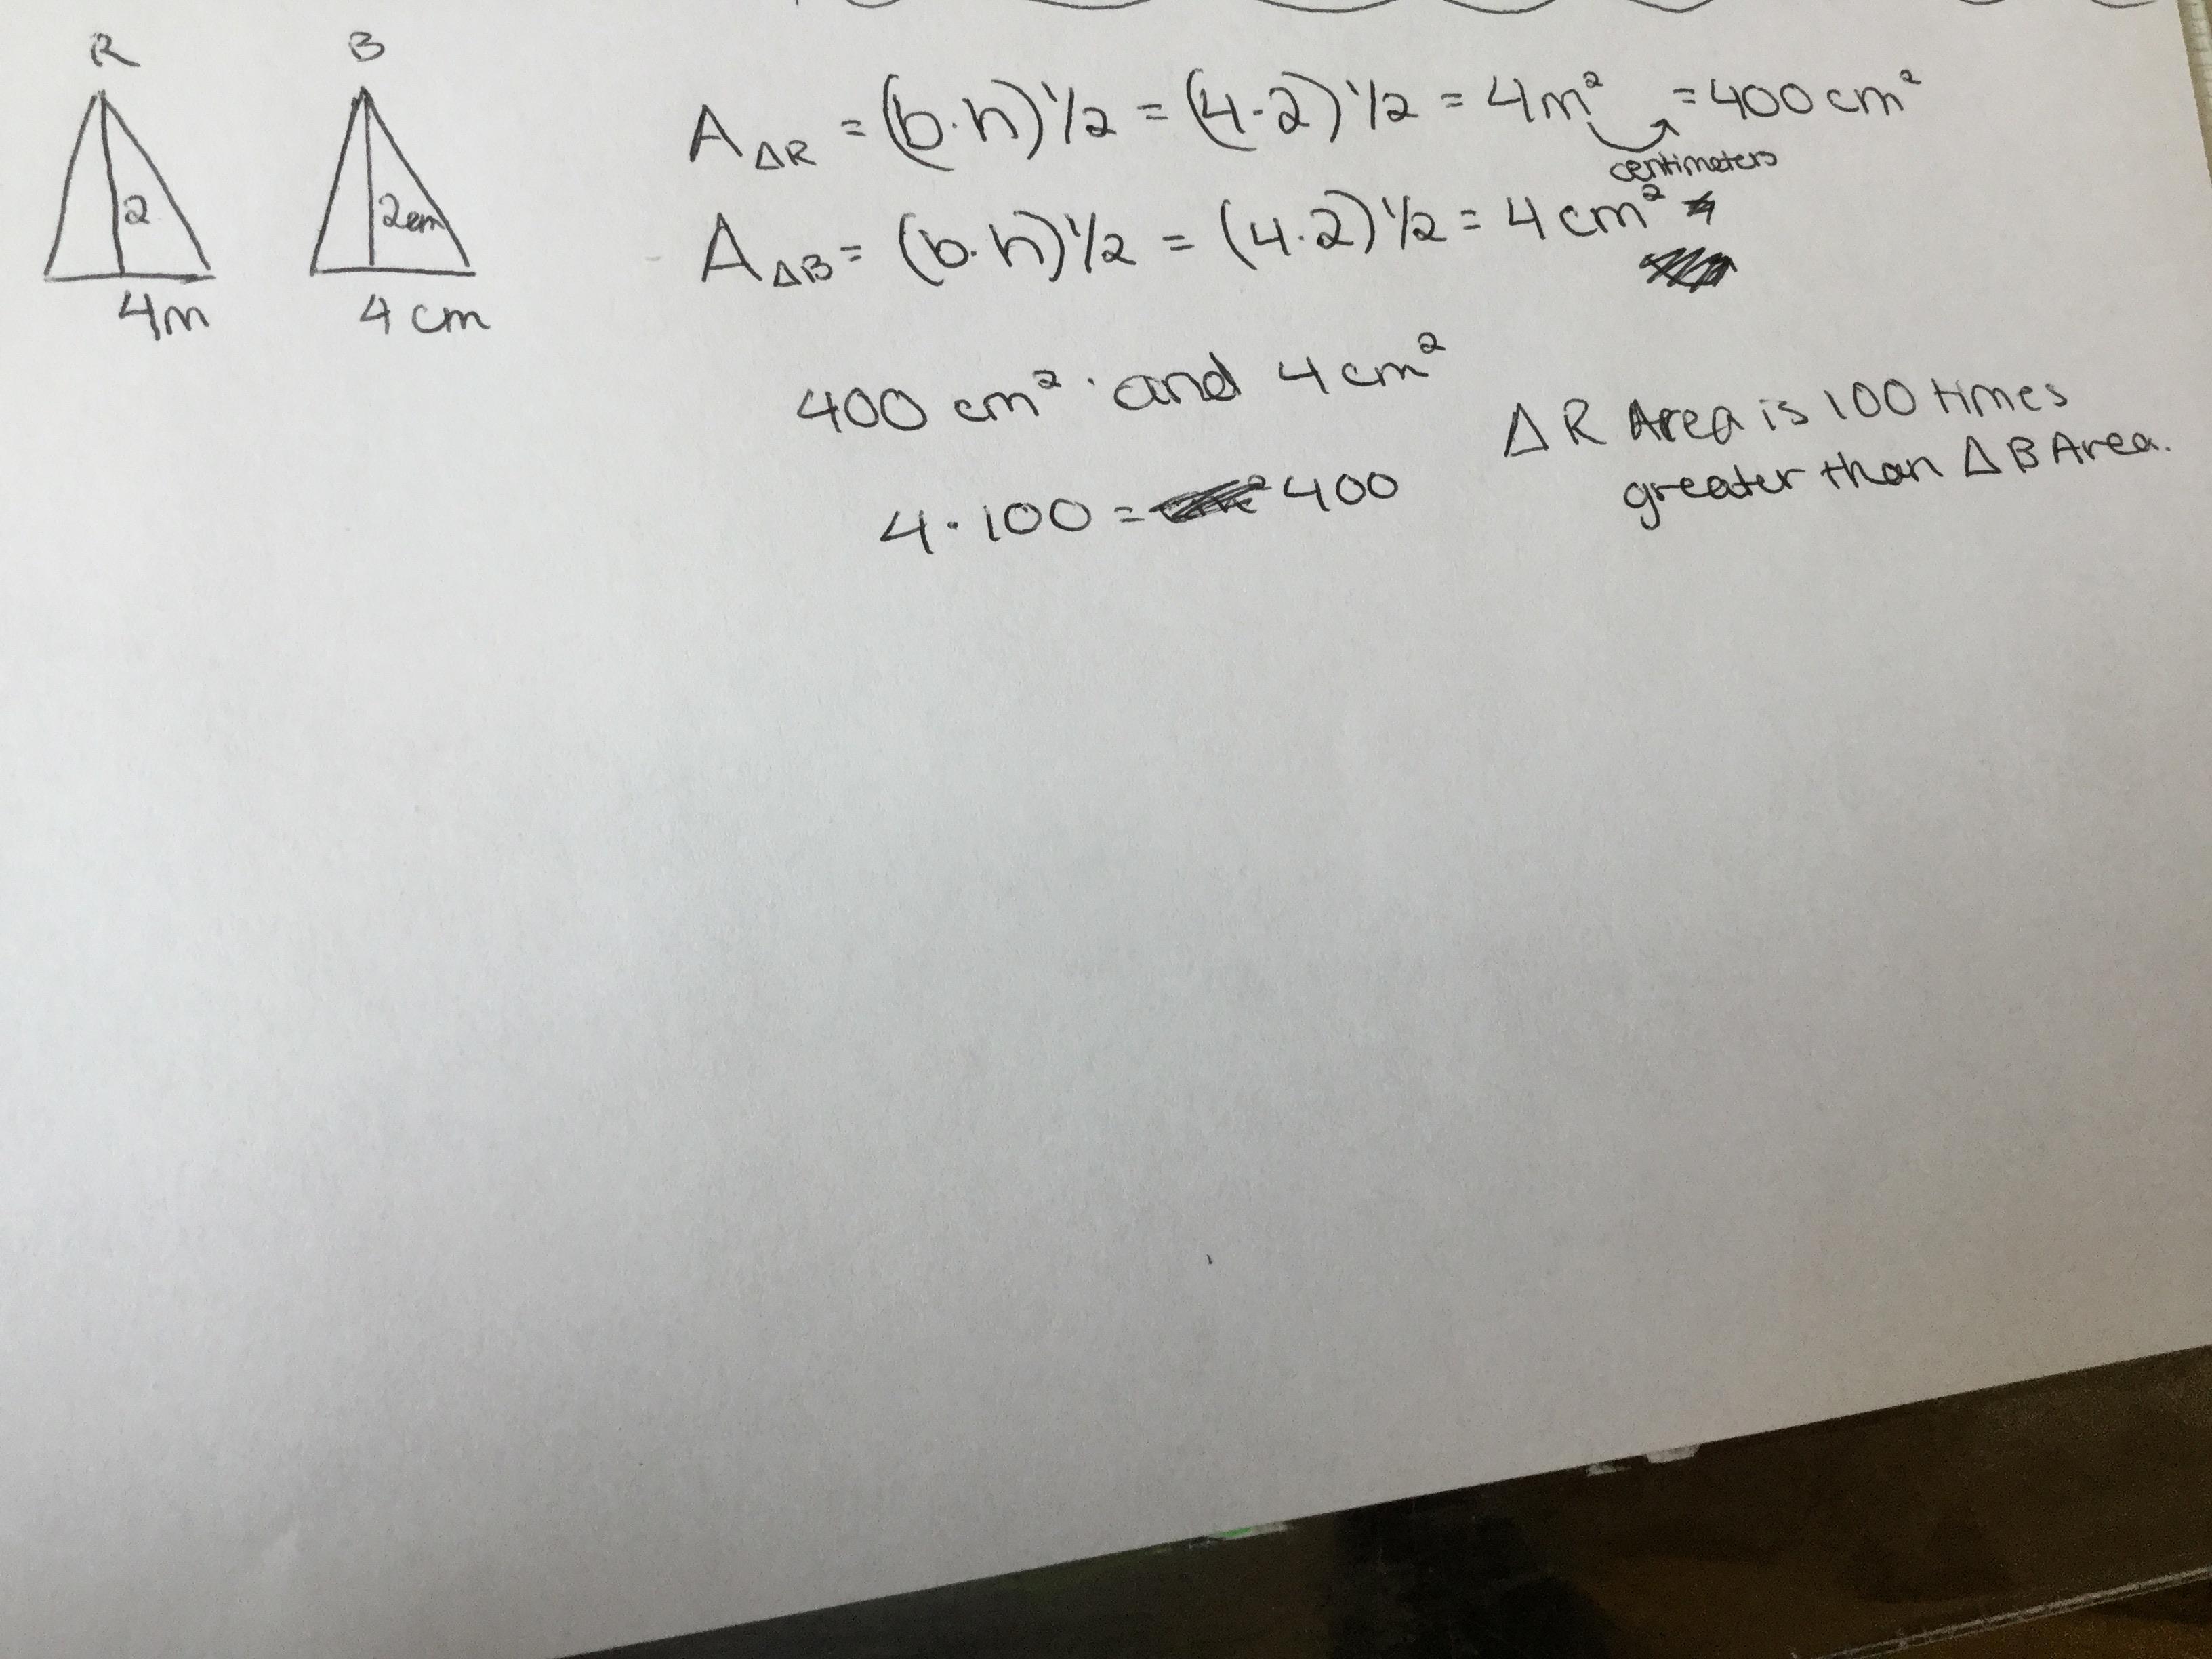 R B
2 2cm
4m 4 cm
A△R = (b·h)1/2 = (4·2)1/2 = 4m² = 400 cm²
centimeters
A△B = (b·h)1/2 = (4·2)1/2 = 4 cm²
400 cm² and 4 cm²
4·100 = 400
△ R Area is 100 times
greater than △ B Area.